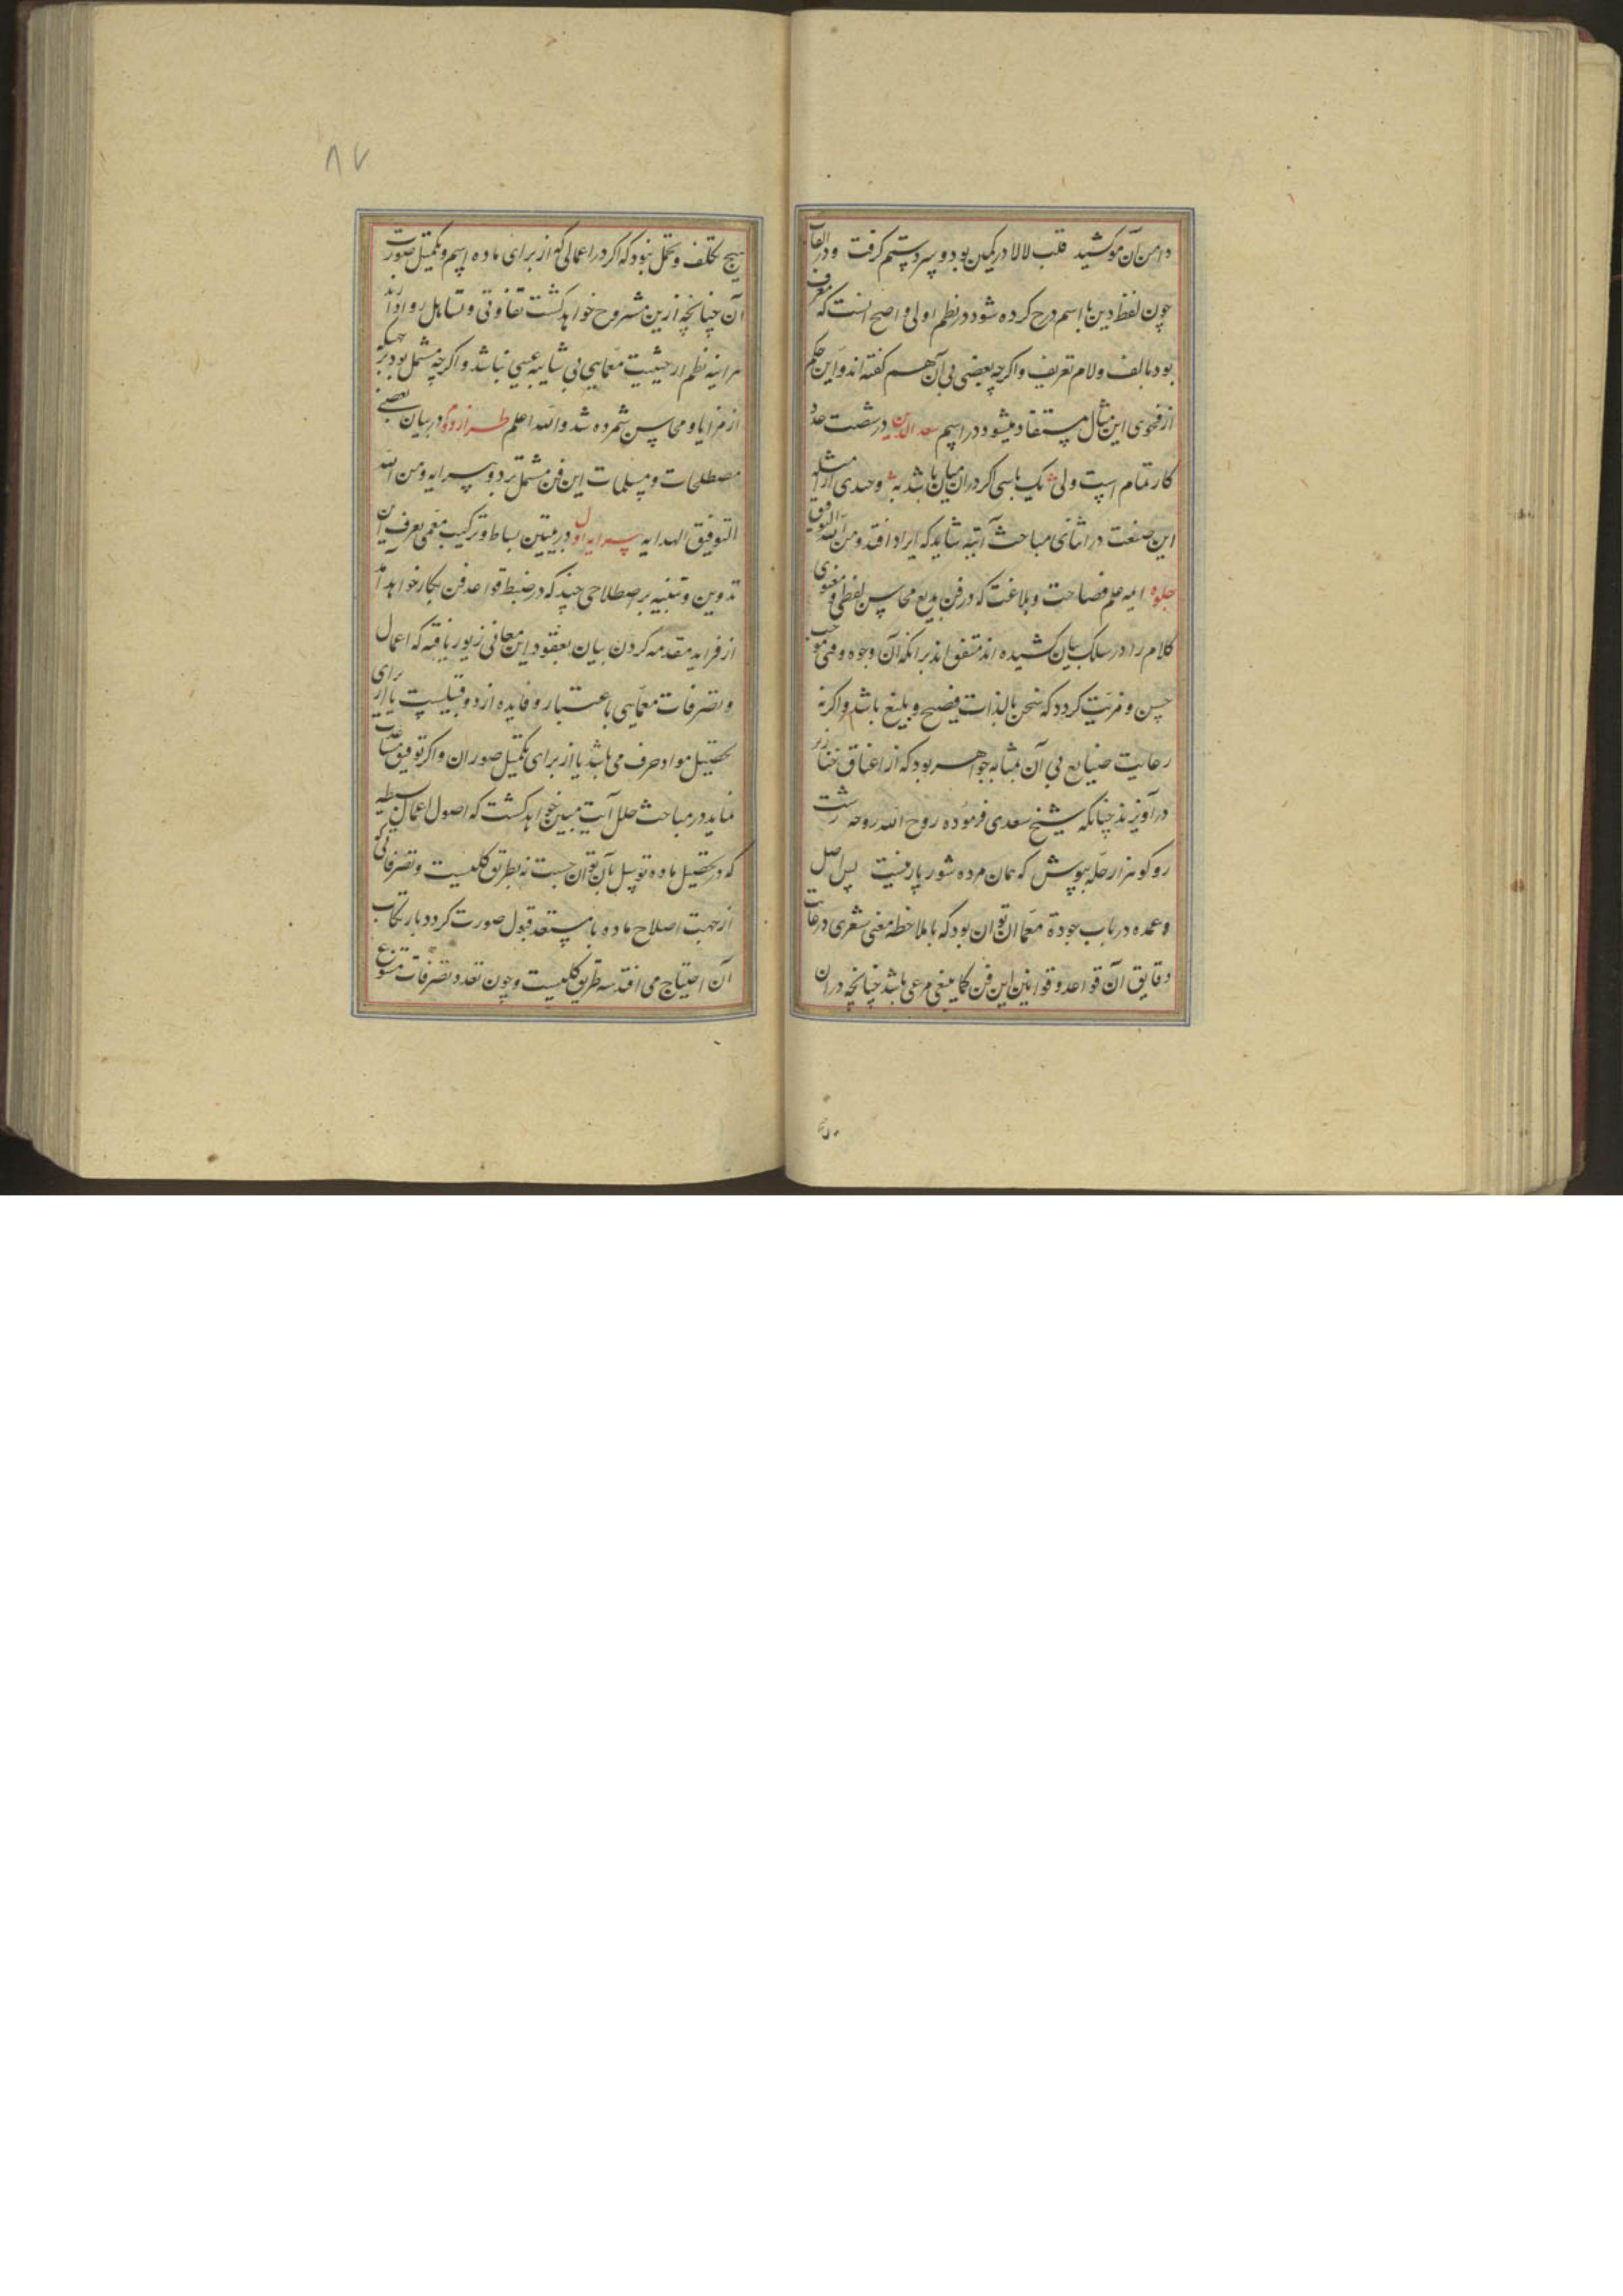 دامن آن موکشید قلب لالا در کمین بود و سر دستم گرفت ودر القاب
چون لفظ دین با اسم درج کرده شود در نظم اولی و اصح انست که معرف
بود بالف ولام تعریف واکرچه بعضی بی آن هم کفته اند واین حکم
از فحوی این مثال مستفاد میشود در اسم سعد الدین در شصت عدد
کار تمام است ولی یک باسی اکر دران میان باشد به وحدی از امثله
این صنعت در اثنای مباحث آتیه شاید که ایراد افتد ومن الله التوفیق
جلوه ایمه علم فصاحت و بلاغت که در فن بدیع محاسن لفظی و معنوی
کلام را در سلک بیان کشیده اند متفق اند برانکه آن وجوه وقتی موجب
حسن و مزیت کردد که سخن بالذات فصیح و بلیغ باشد واکرنه
رعایت صنایع بی آن بمثابه جواهر بود که از اعناق خنازیر
در آویزند چنانکه شیخ سعدی فرموده روح الله روحه زشت
رو کو هزار حله بپوش که همان مرده شور پارینیت پس اصل
وعمده در باب جودة معما ان تواند بود که با ملاحظه معنی شعری و رعایت
دقایق آن قواعد و قوانین این فن کما ینبغی مرعی باشد چنانچه دران
۸۷
هیچ تکلف و تحمل نبود که اکر در اعمالی که از برای ماده اسم و تکمیل صورت
آن چنانچه ازین مشروح خواهد کشت تفاوتی و تساهل روا دارند
هراینه نظم از حیثیت معمایی بی شایبه عیبی نباشد واکرچه مشتمل بود بر
از مزایا و محاسن شمرده شد والله اعلم طراز دوم در بیان بعضی
مصطلحات و مسلمات این فن مشتمل بر دو پیرایه ومن الله
التوفیق الهدایه پیرایه اول در تبیین بساط و ترکیب معمی بعرف این
تدوین و تنبیه بر اصطلاحی چند که در ضبط قواعد فن بکار خواهد آمد
از فراید مقدمه کردن بیان بعقود این معانی زیور یافته که اعمال
و تصرفات معمایی باعتبار و فایده از دو قبیلست یا از برای
تحصیل مواد حرف می باشد یا از برای تکمیل صور ان واکر توفیق مساعدت
نماید در مباحث حلل آیت مبین خواهد کشت که اصول اعمال بسیطه
که در تحصیل ماده توسل بآن توان جست نه بطریق کلیست و تصرفاتی که
از جهت اصلاح ماده تا مستعد قبول صورت کردد بارتکاب
آن احتیاج می افتد سه طریق کلیست و چون تعدد تصرفات متنوع